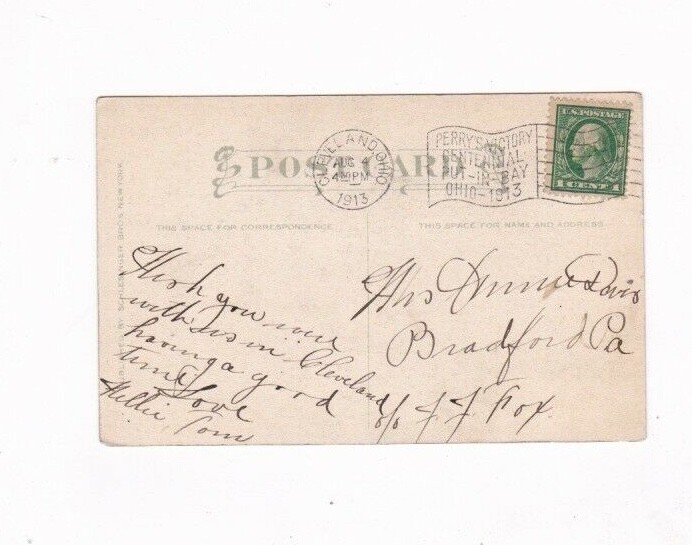 CLEVELAND, OHIO
AUG 4
4:30 PM
1913
PERRY'S VICTORY
CENTENNIAL
PUT-IN-BAY
OHIO-1913
U.S. POSTAGE
1 CENT 1
POST CARD
THIS SPACE FOR CORRESPONDENCE
THIS SPACE FOR NAME AND ADDRESS
PUBLISHED BY SCHLESINGER BROS. NEW YORK.
Wish you were
with us in Cleveland
having a good
time Love
Nellie, Tom
Mrs Annie Davis
Bradford Pa
c/o J J Fox